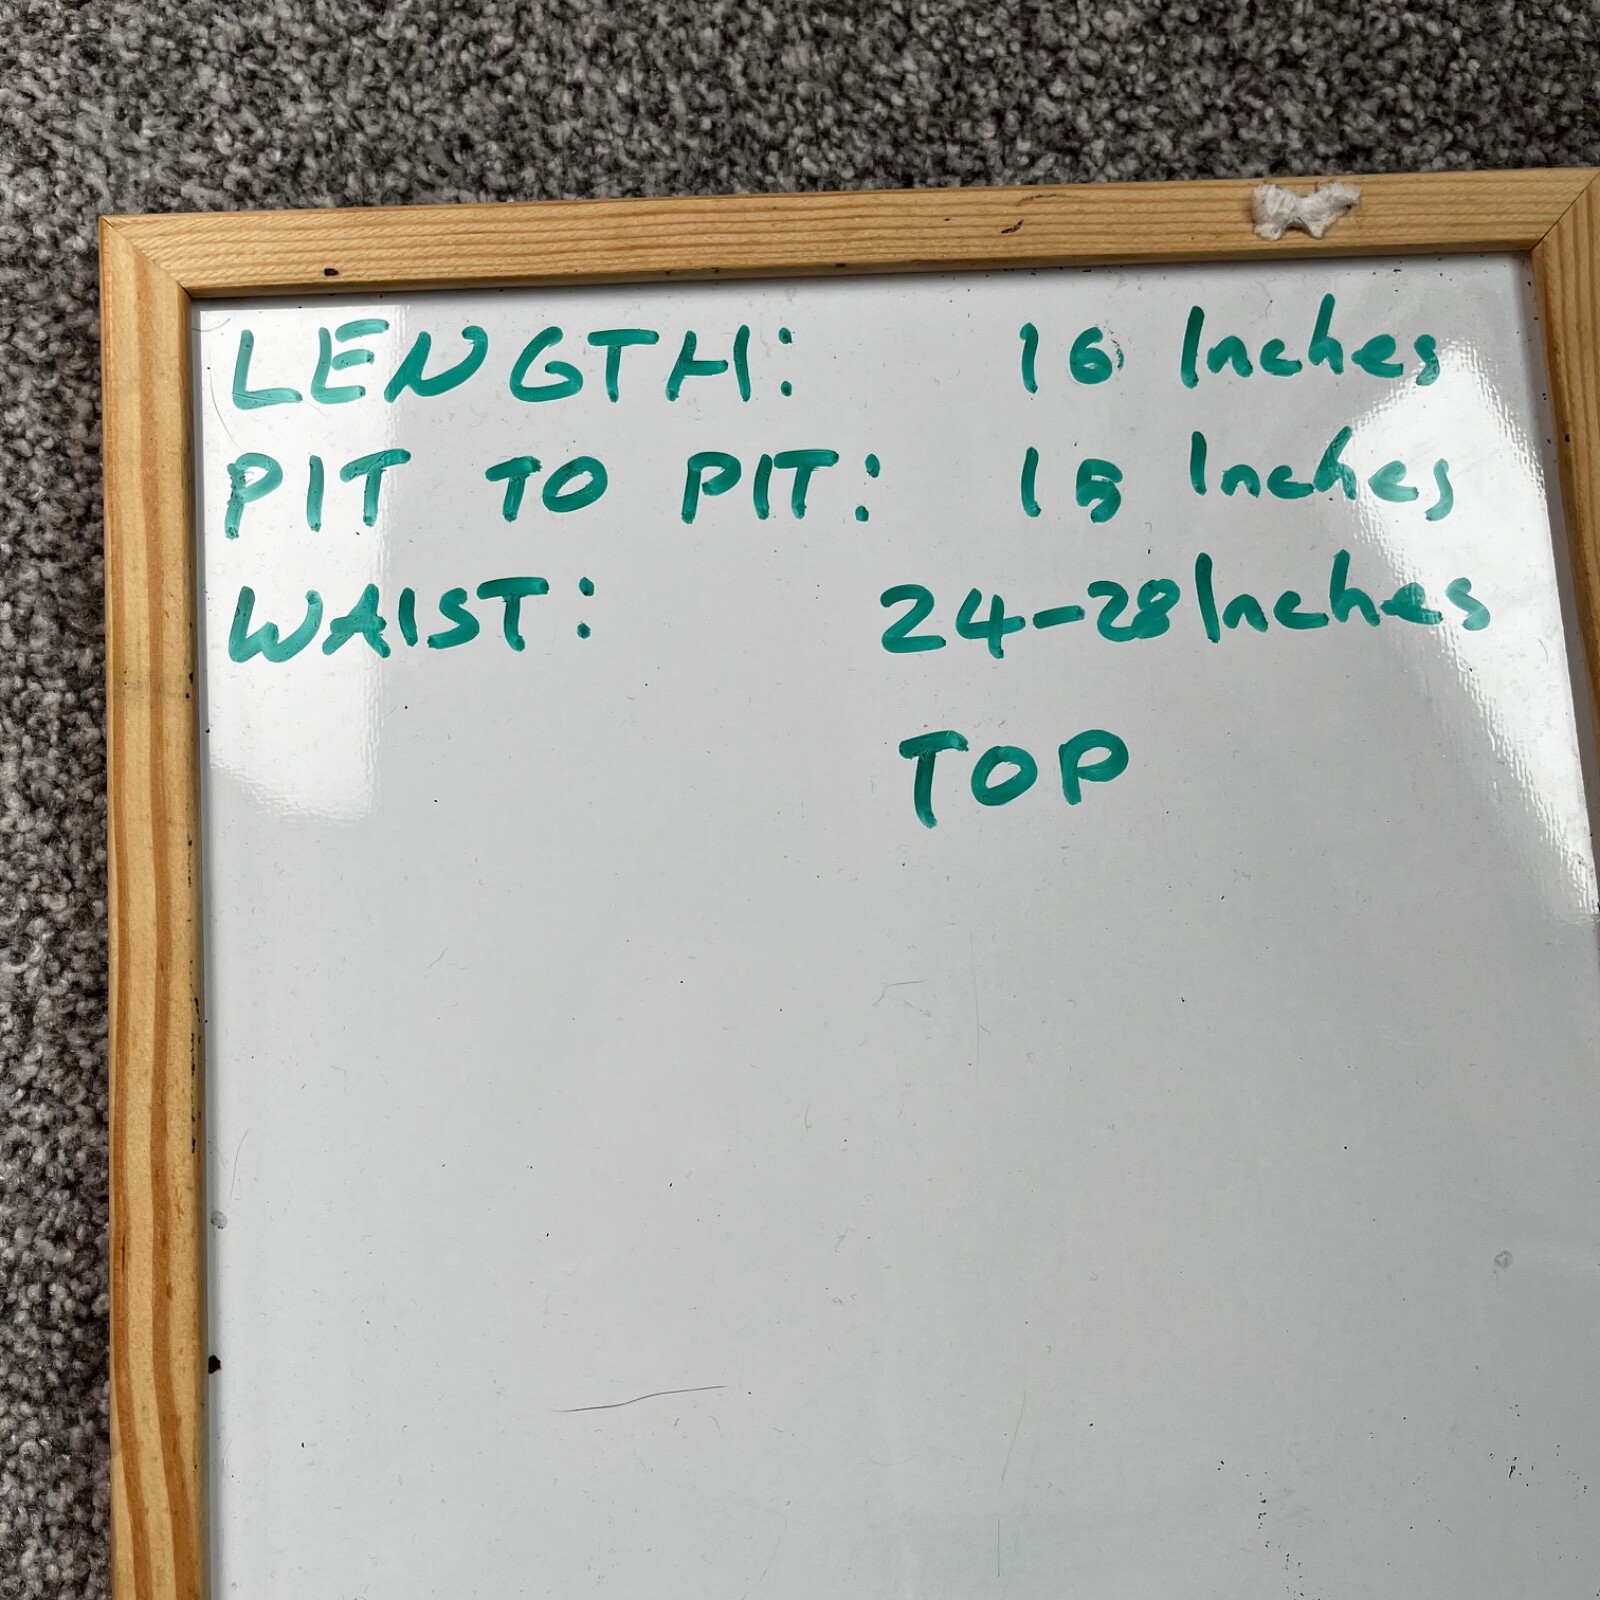 LENGTH: 16 Inches
PIT TO PIT: 15 Inches
WAIST: 24-28 Inches
TOP